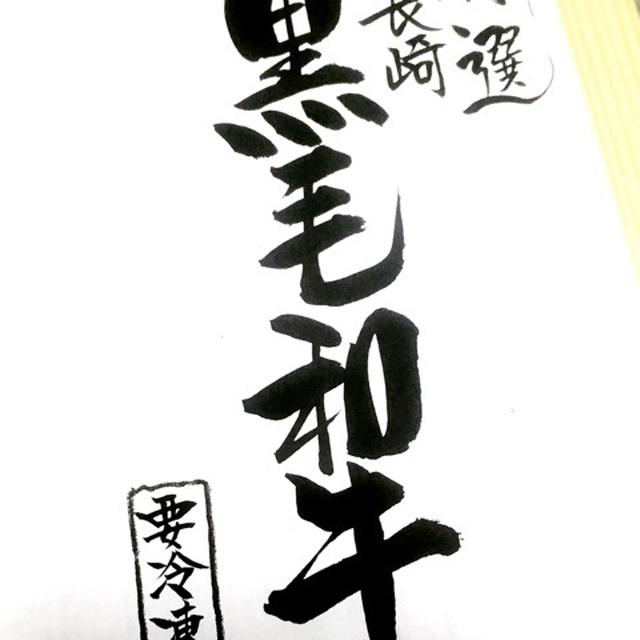 選
長崎
黒毛和牛
要冷凍